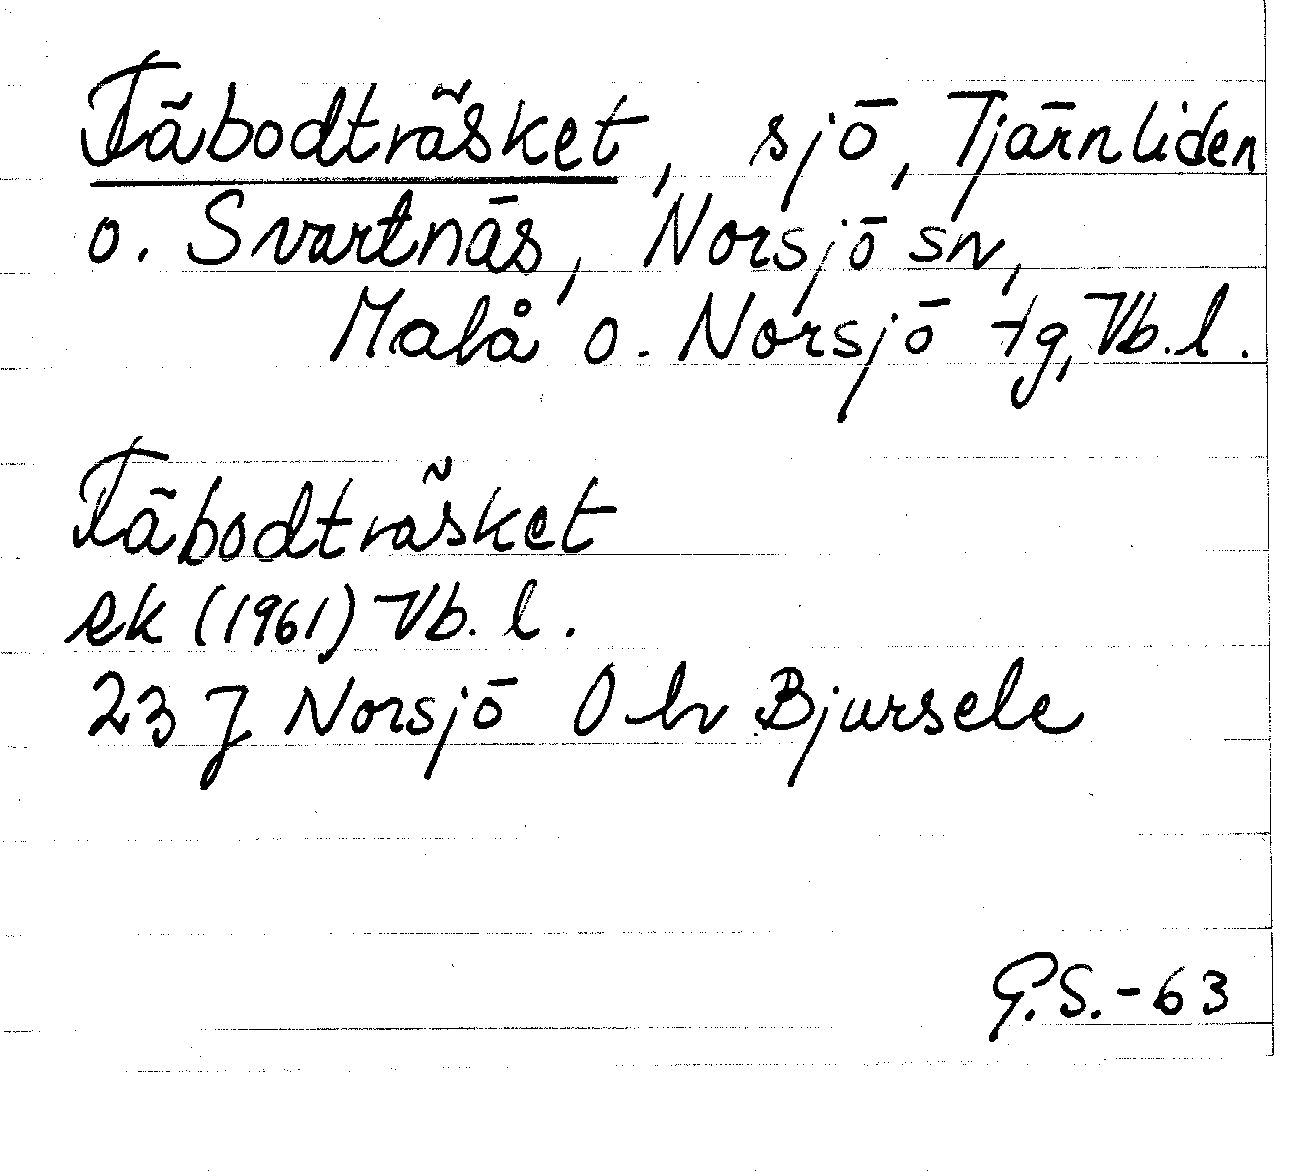 Fäbodträsket, sjö, Tjärnliden
o. Svartnäs, Norsjö sn,
Malå o. Norsjö tg, Vb. l.
Fäbodträsket
ek (1961) Vb. l.
23 J Norsjö O hv Bjursele
G.S. -63